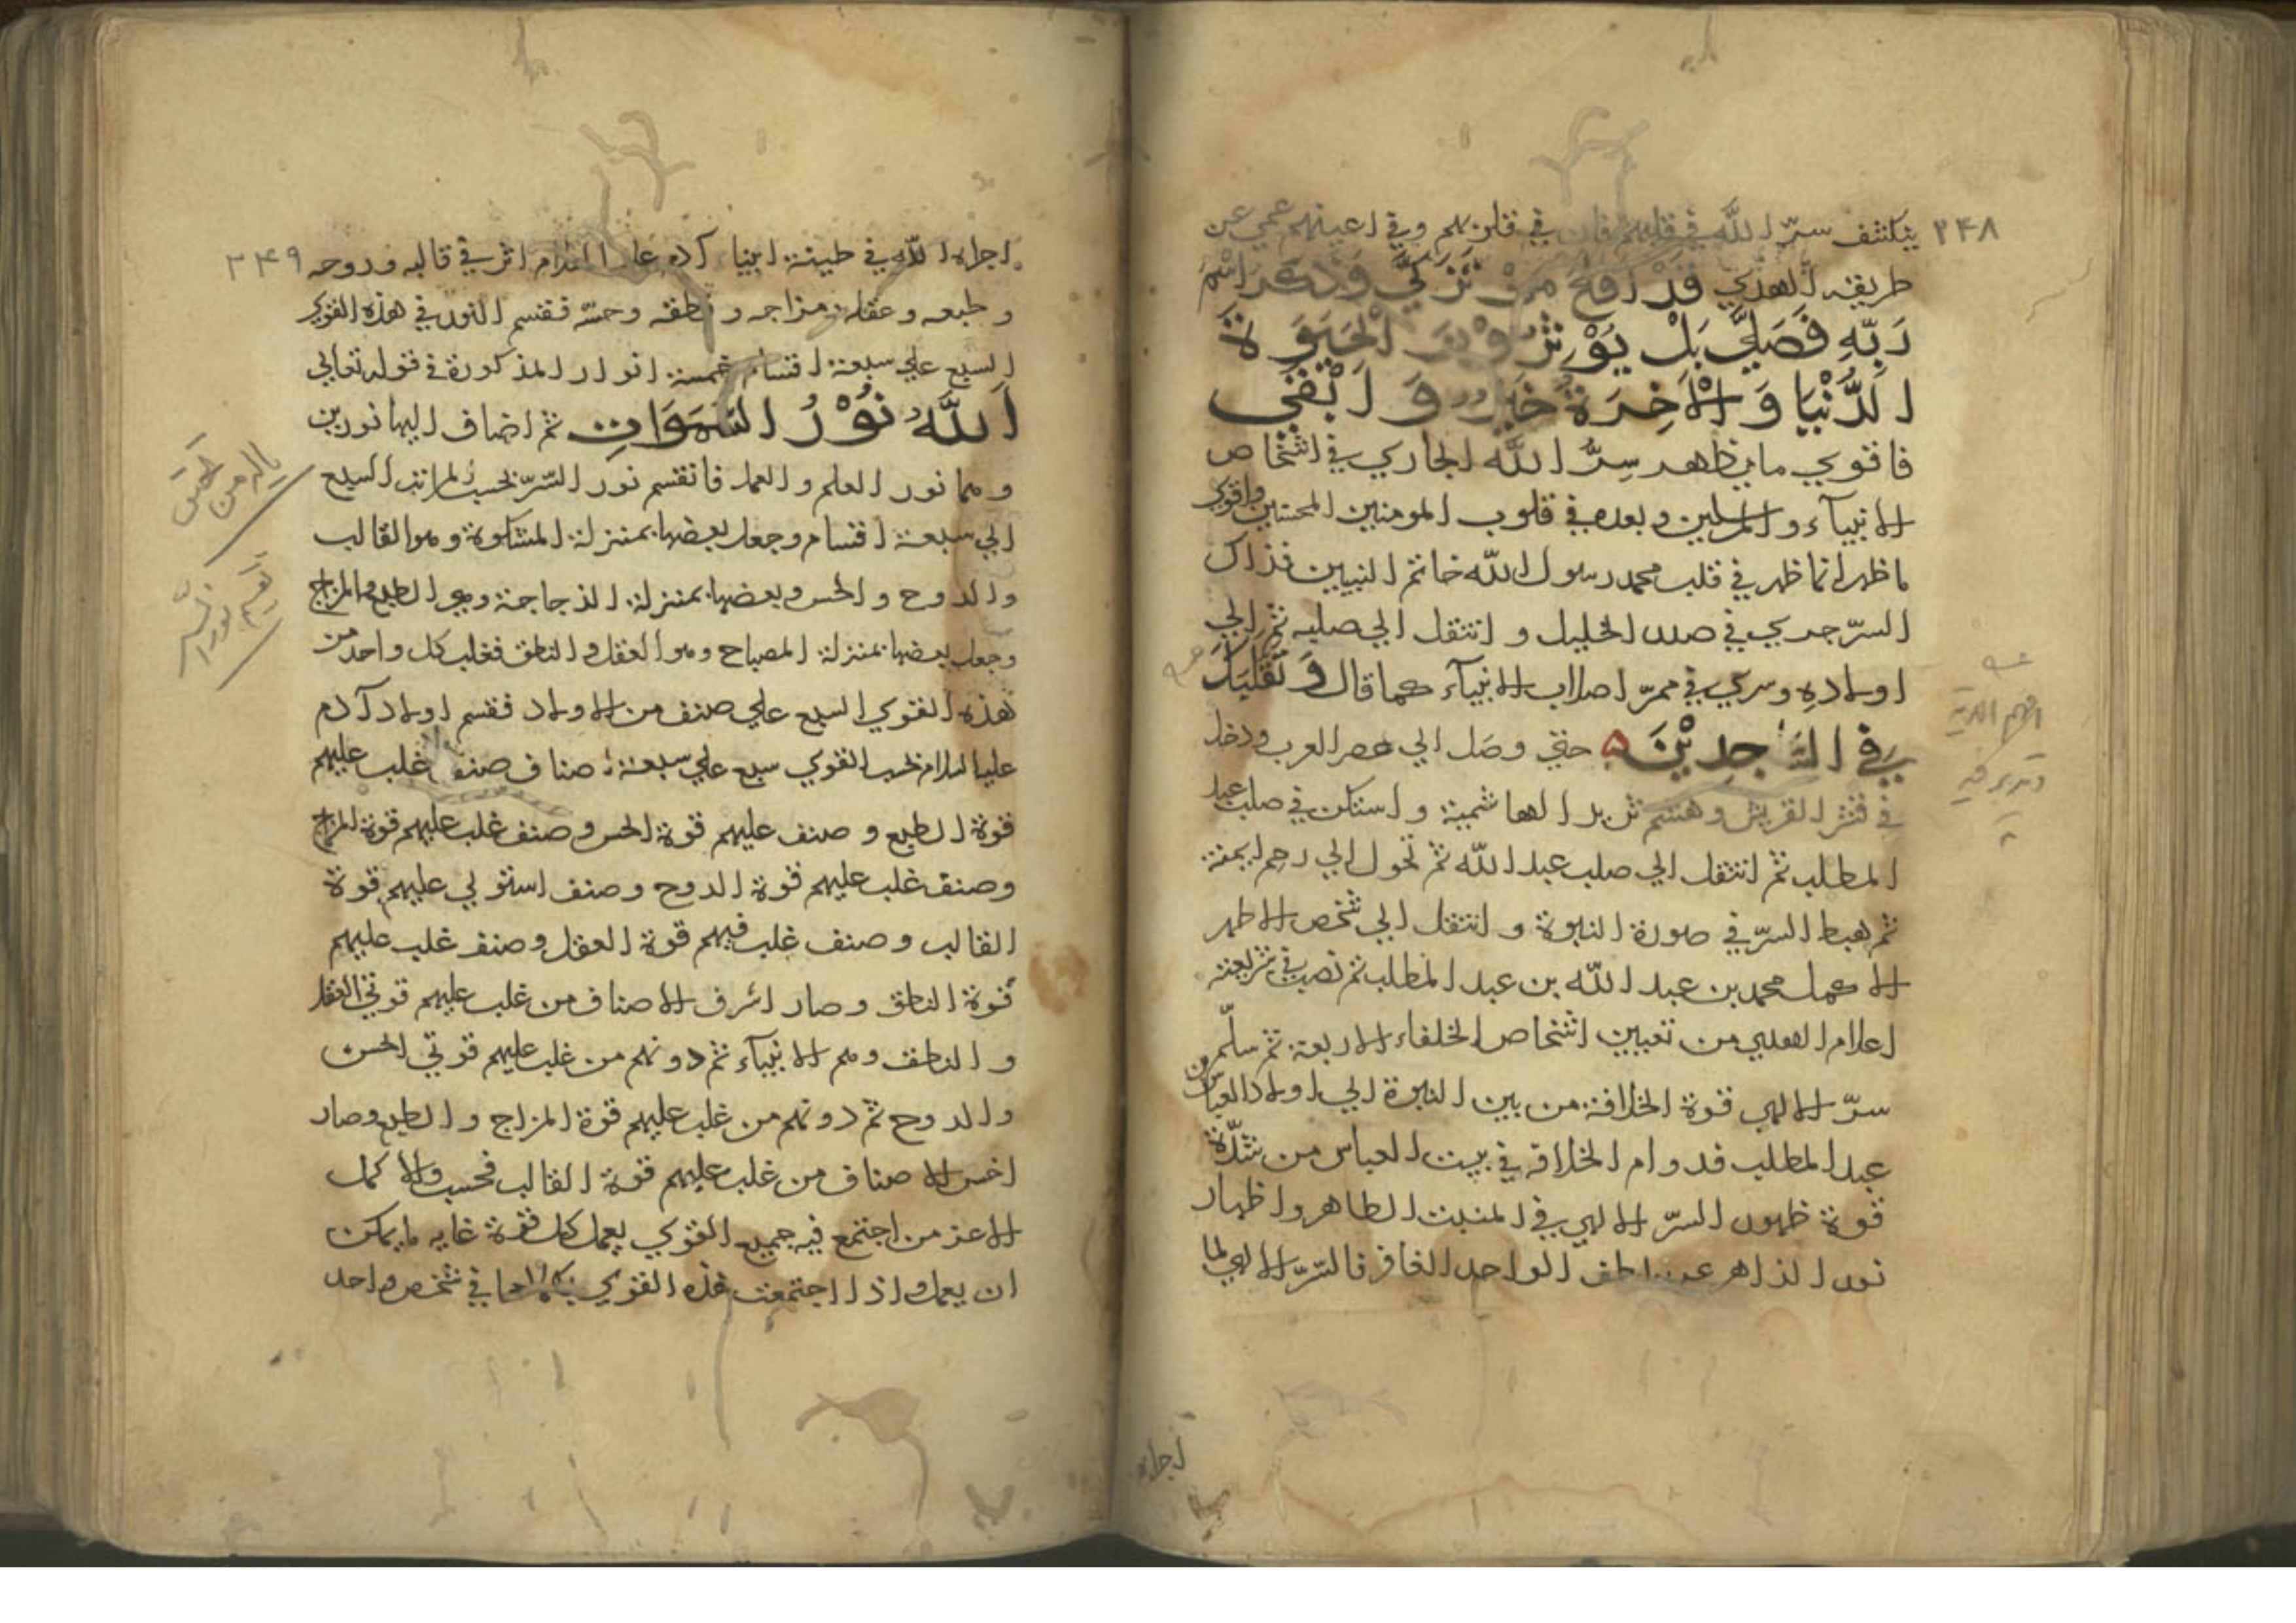 ٢٤٨
ينكشف سرّ الله في قلبهم فان في قلوبهم وفي اعينهم عمي عن
طريقة الهدي قَدْ اَفْلَحَ مَنْ تَزَكَّي وَذَكَرَ اسْمَ
رَبِّهِ فَصَلَّي بَلْ يُؤْثِرُوْنَ الْحَيَوةَ
الدُّنْيَا وَالْاٰخِرَةُ خَيْرٌ وَاَبْقَي
فاقوي ما يظاهر سِرُّ الله الجاري في اشخاص
الانبيآء والمرسلين وبعده في قلوب المومنين المحسنين واقوي
ما ظهر انما ظهر في قلب محمد رسول الله خاتم النبيين فذاك
السرّ جري في صدر الخليل وانتقل الي صلبه ثم الي
اولاده وسري في ممرّ اصلاب الانبيآء كما قال وَتَقَلُّبَكَ
فِي السَّاجِدِيْنَ حتي وصل الي عصر العرب ودخل
في قشر القريش وهشم ثريد الهاشمية واستكن في صلب عبد
المطلب ثم انتقل الي صلب عبد الله ثم تحول الي رحم ايمنة
ثم هبط السرّ في صورة النبوة وانتقل الي شخص الاطهر
الاكمل محمد بن عبد الله بن عبد المطلب ثم نصب في شريعته
اعلام الهدي من تعيين اشخاص الخلفاء الاربعة ثم سلّم من
سرّ الالهي قوة الخلافة من بين النبوة الي اولاد العباس بن
عبد المطلب فدوام الخلافة في بيت العباس من شدّة
قوة ظهور السرّ الالهي في المنبت الطاهر واظهار
نور الزاهر عن لطف الواحد الغافر فالسّرّ الالهي لما
اجراه
٢٤٩
اجراه الله في طينة ابينا آدم عليه السلام اثر في قالبه وروحه
وطبعه وعقله ومزاجه ونطقه وحسّه فقسم النور في هذه القوي
السبع علي سبعة اقسام خمسة انوار المذكورة في قوله تعالي
اَللهُ نُوْرُ السَّمَوَاتِ ثم اضاف اليها نورين
وهما نور العلم والعمل فانقسم نور السّرّ بحسب المراتب السبع
الي سبعة اقسام وجعل بعضها بمنزلة المشكوة وهو القالب
والروح والحس وبعضها بمنزلة الزجاجة وهو الطبع والمزاج
وجعل بعضها بمنزلة المصباح وهو العقل والناطق فغلب كل واحد من
هذه القوي السبع علي صنف من الاولاد فقسم اولاد آدم
عليه السلام بحسب القوي سبع علي سبعة اصناف صنف غلب عليهم
قوة الطبع وصنف عليهم قوة الحس وصنف غلب عليهم قوة المزاج
وصنف غلب عليهم قوة الروح وصنف استولي عليهم قوة
القالب وصنف غلب فيهم قوة العقل وصنف غلب عليهم
قوة الناطق وصار اشرف الاصناف من غلب عليهم قوتي العقل
والناطق وهم الانبيآء ثم دونهم من غلب عليهم قوتي الحس
والروح ثم دونهم من غلب عليهم قوة المزاج والطبع وصار
اخس الاصناف من غلب عليهم قوة القالب فحسب والاكمل
الاعز من اجتمع فيه جميع القوي يعمل كل قوة غاية ما يمكن
ان يعمل واذا اجتمعت هذه القوي بكمالها في شخص واحد